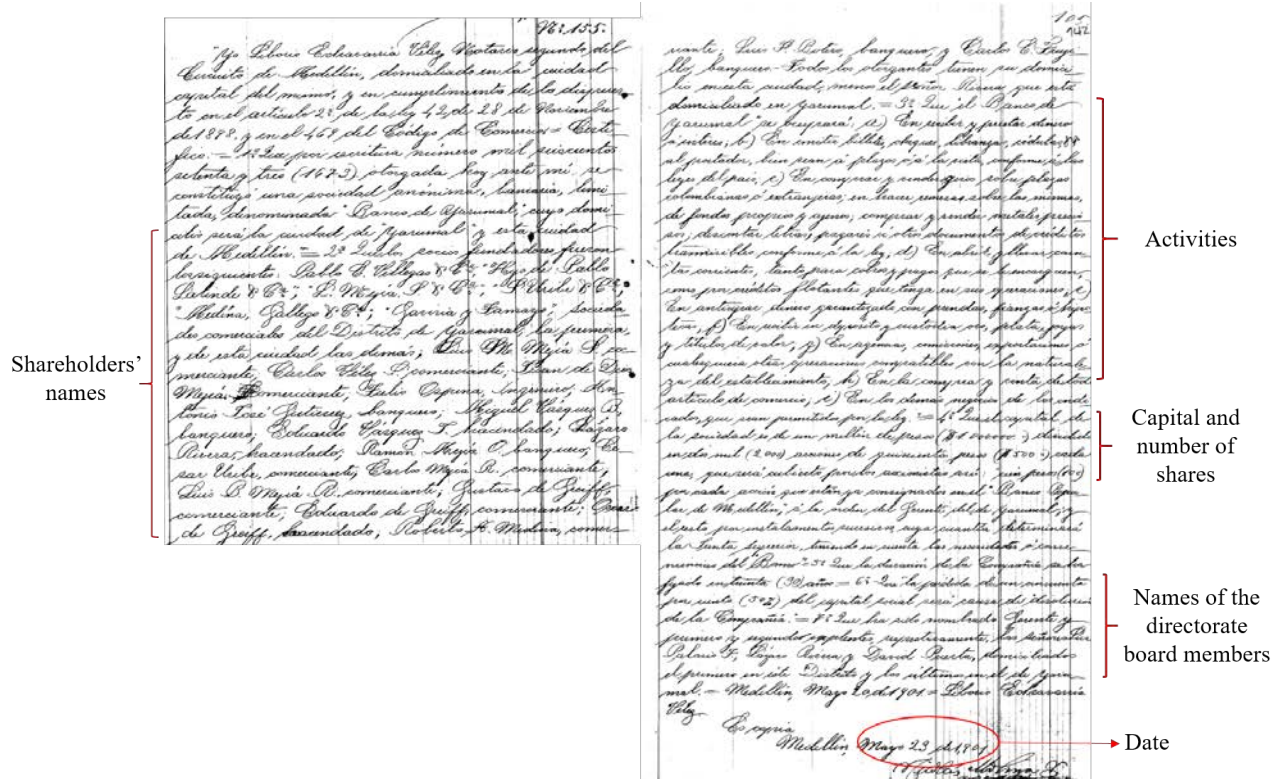 Nº 155.
"Yo Liborio Echavarría Vélez Notario segundo del
Circuito de Medellín, domiciliado en la ciudad
capital del mismo, y en cumplimiento de lo dispues-
to en el artículo 2º de la ley 42 de 28 de Noviembre
de 1888 y en el 469 del Código de Comercio = Certi-
fico. = 1º Que por escritura número mil seiscientos
setenta y tres (1673) otorgada hoy ante mí, se
constituyó una sociedad anónima, bancaria, limi-
tada, denominada "Banco de Yarumal", cuyo domi-
cilio será la ciudad de Yarumal y esta ciudad
de Medellín. = 2º Que los socios fundadores fueron
los siguientes: Pablo E. Villegas & Cª "Hijos de Pablo
Lalinde & Cª", "L. Mejía S. & Cª", "J. Uribe & Cª",
"Medina, Gallego & Cª", "Gaviria y Tamayo", socieda-
des comerciales del Distrito de Yarumal, la primera,
y de esta ciudad las demás; Luis M. Mejía S. co-
merciante, Carlos Vélez S. comerciante, Juan de Dios
Mejía, comerciante, Tulio Ospina, Ingeniero, An-
tonio José Gutiérrez, banquero; Miguel Vásquez B.
banquero, Eduardo Vásquez J. hacendado; Lázaro
Rivera, hacendado, Ramón Mejía O. banquero, Cé-
sar Uribe, comerciante, Carlos Mejía R. comerciante,
Luis B. Mejía R. comerciante; Gustavo de Greiff,
comerciante, Eduardo de Greiff, comerciante; Oscar
de Greiff, hacendado; Roberto A. Medina, comer-
105
ciante; Luis P. Botero, banquero, y Carlos E.
banquero. Todos los otorgantes tienen su domici-
lio en esta ciudad, menos el señor Rivera que está
domiciliado en Yarumal. = 3º Que "el Banco de
Yarumal" se ocupará: a) En recibir y prestar dinero
á interés; b) En emitir billetes, cheques, libranzas, cédulas, &&
al portador, bien sean á plazo ó á la vista, conforme á las
leyes del país, c) En comprar y vender giros sobre plazas
colombianas ó extranjeras, en hacer remesas sobre las mismas,
de fondos propios y ajenos; comprar y vender metales precio-
sos; descontar letras, pagarés ú otros documentos de crédito
transmisibles conforme á la ley, d) En abrir y llevar cuen-
tas corrientes, tanto para cobros y pagos que se le encarguen
como por créditos flotantes que tenga en sus operaciones; e)
En anticipar dinero garantizado con prendas, fianzas é hipo-
tecas, f) En recibir en depósito y custodia oro, plata, joyas
y títulos de valor, g) En agencias, comisiones, exportaciones ó
cualesquiera otras operaciones compatibles con la naturale-
za del establecimiento, h) En la compra y venta de todo
artículo de comercio, i) En los demás negocios de los
que sean permitidos por la ley. = 4º Que el capital de
la sociedad es de un millón de pesos ($1.000000.) dividido
en dos mil (2.000) acciones de quinientos pesos ($500.) cada
una, que será cubierto por los accionistas así: pesos
por cada acción que están ya consignados en el "Banco Popu-
lar de Medellín", á la orden del Gerente del de Yarumal, y
el resto por instalamentos sucesivos, cuya cuantía determinará
la Junta superior, teniendo en cuenta las necesidades ó conve-
niencias del "Banco" = 5º Que la duración de la Compañía se ha
fijado en treinta (30) años = 6º Que la pérdida de un cincuenta
por ciento (50%) del capital social será causa de disolución
de la Compañía. = 7º Que han sido nombrados Gerente y
primero y segundo suplentes, respectivamente, los señores
Palacio F., Lázaro Rivera y David Puerta, domiciliados
el primero en este Distrito y los últimos en el de Yaru-
mal. = Medellín, Mayo 20, de 1901 = Liborio Echavarría
Vélez
Es copia
Medellín, Mayo 23 de 1901
Shareholders'
names
Activities
Capital and
number of
shares
Names of the
directorate
board members
Date